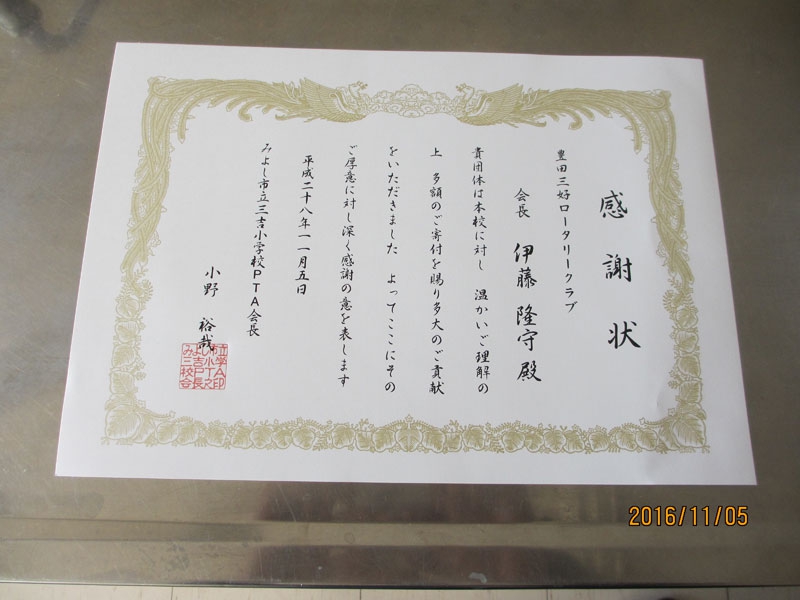 感謝状
豊田三好ロータリークラブ
会長 伊藤 隆守 殿
貴団体は本校に対し 温かいご理解の
上 多額のご寄付を賜り多大のご貢献
をいただきました よってここにその
ご厚意に対し深く感謝の意を表します
平成二十八年一一月五日
みよし市立三吉小学校PTA会長
小野 裕哉
2016/11/05